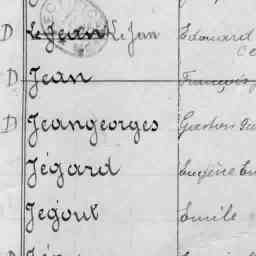 D Le Jean Le Jan Edouard
D Jean François
D Jeangeorges
Jégard Eugène
Jégout Emile
D